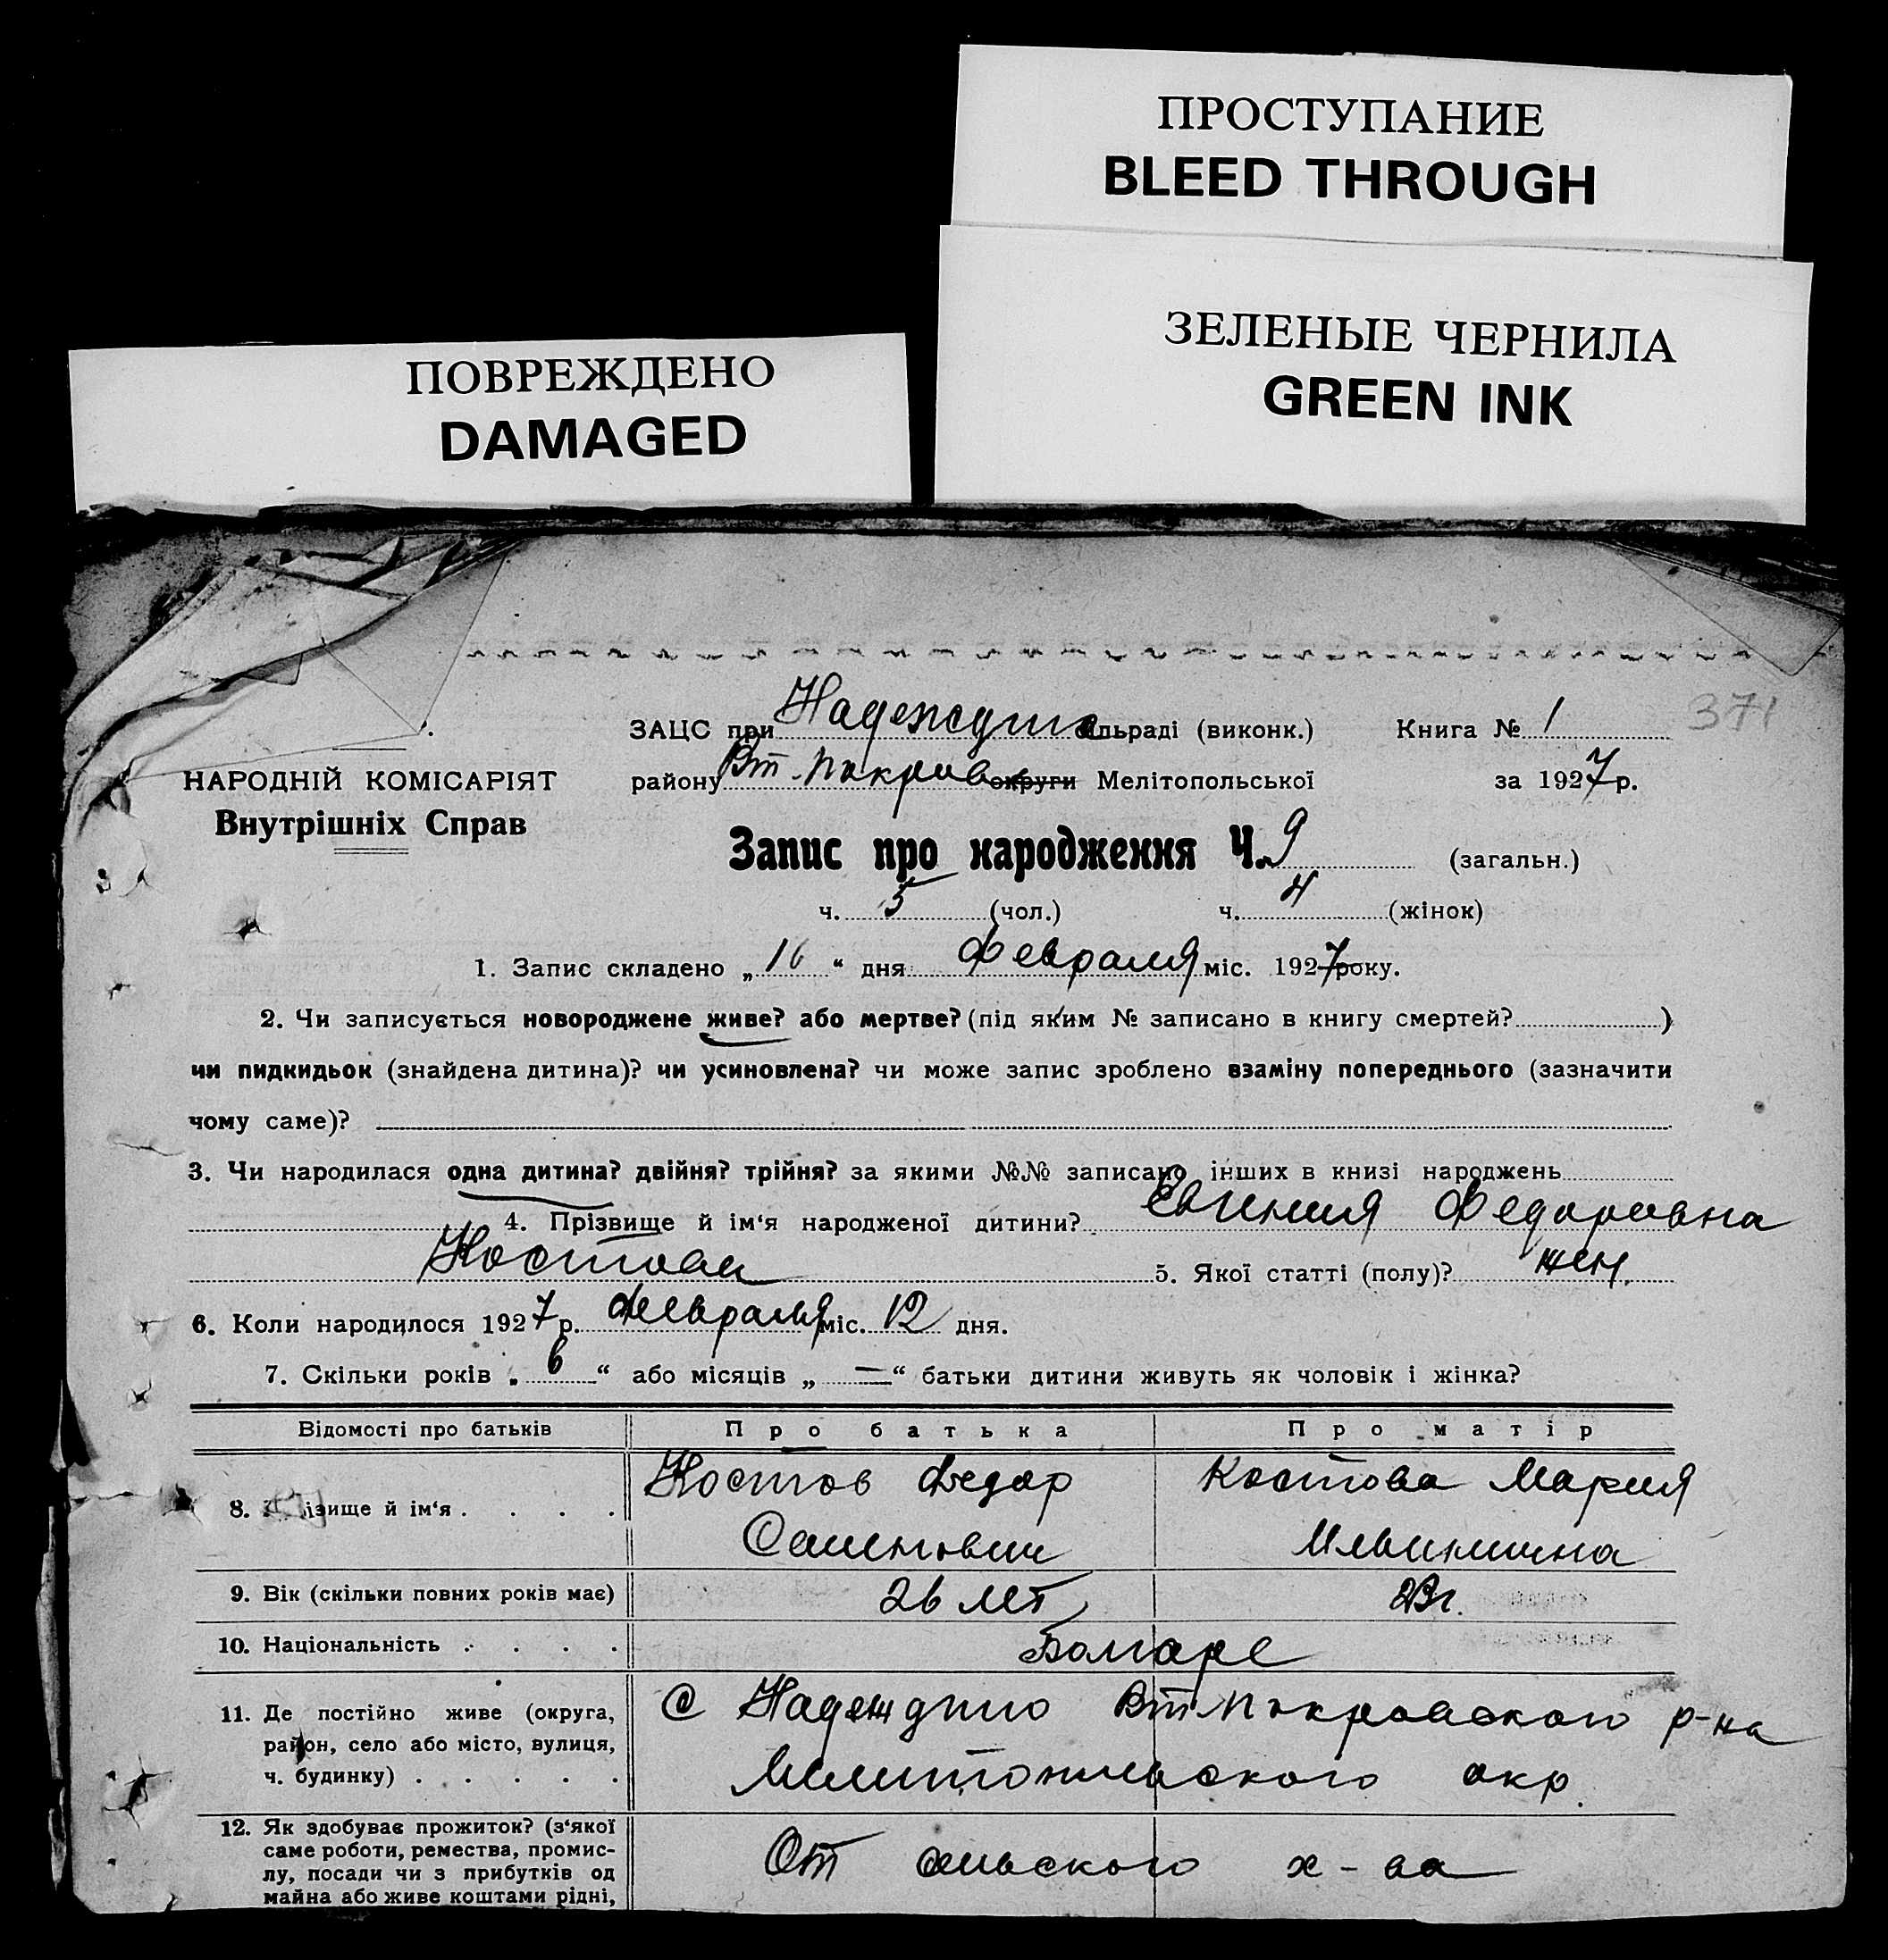 ПРОСТУПАНИЕ
BLEED THROUGH
ЗЕЛЕНЫЕ ЧЕРНИЛА
GREEN INK
ПОВРЕЖДЕНО
DAMAGED
371
ЗАЦС при Надеждино сільраді (виконк.) Книга № 1
НАРОДНІЙ КОМІСАРІЯТ
Внутрішніх Справ
району Вт-Покров округи Мелітопольської за 1927 р.
Запис про народження Ч. 9 (загальн.)
ч. 5 (чол.) ч. 4 (жінок)
1. Запис складено „16“ дня Февраля міс. 1927 року.
2. Чи записується новороджене живе? або мертве? (під яким № записано в книгу смертей? )
чи пидкидьок (знайдена дитина)? чи усиновлена? чи може запис зроблено взаміну попереднього (зазначити
чому саме)?
3. Чи народилася одна дитина? двійня? трійня? за якими №№ записано інших в книзі народжень
4. Прізвище й ім‘я народженої дитини? Евгения Федоровна
Костова 5. Якої статті (полу)? жен.
6. Коли народилося 1927 р. Февраля міс. 12 дня.
7. Скільки років „6“ або місяців „—“ батьки дитини живуть як чоловік і жінка?
Відомості про батьків Про батька Про матір
8. ізище й ім‘я . . . . Костов Федор Костова Мария
Семенович Ильинична
9. Вік (скільки повних років має) 26 лет 23 г.
10. Національність . . . . Болгаре
11. Де постійно живе (округа,
район, село або місто, вулиця,
ч. будинку) . . . . .
С Надеждино Вт Покровского р-на
Мелитопольского окр.
12. Як здобуває прожиток? (з‘якої
саме роботи, ремества, промис-
лу, посади чи з прибутків од
майна або живе коштами рідні,
От сельского х-ва